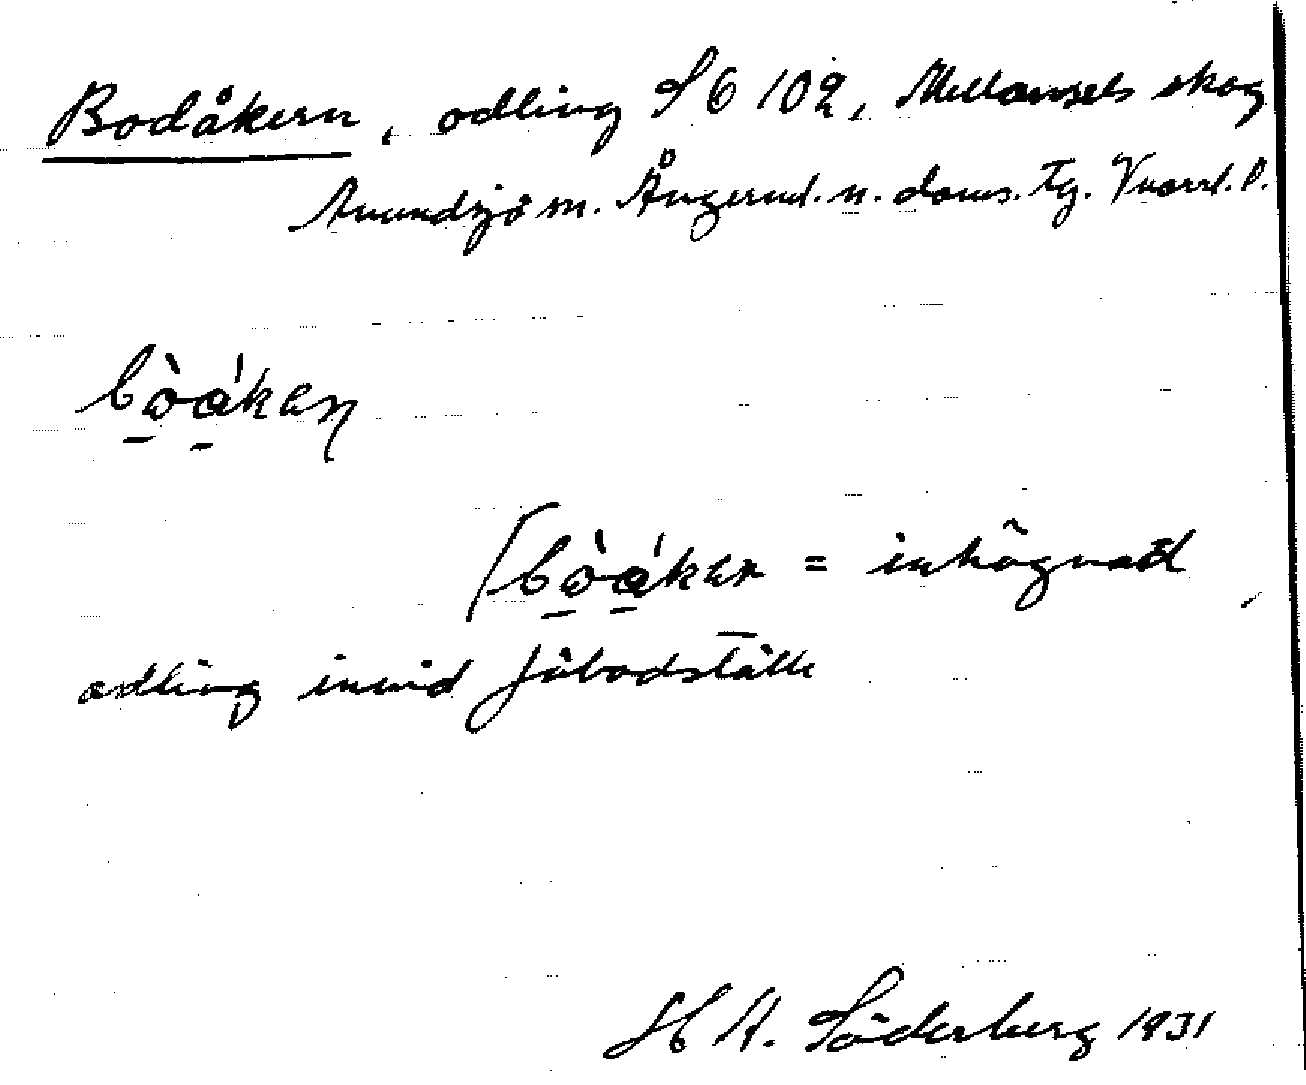 Bodåkern, odling S 6 102, Mellansels skog
Anundsjö sn. Ångerml. n. doms. tg. Vnorrl. l.
bò̱á̱ken
[bò̱á̱ker = inhägnad
odling invid fäbodställe
H A. Söderberg 1931